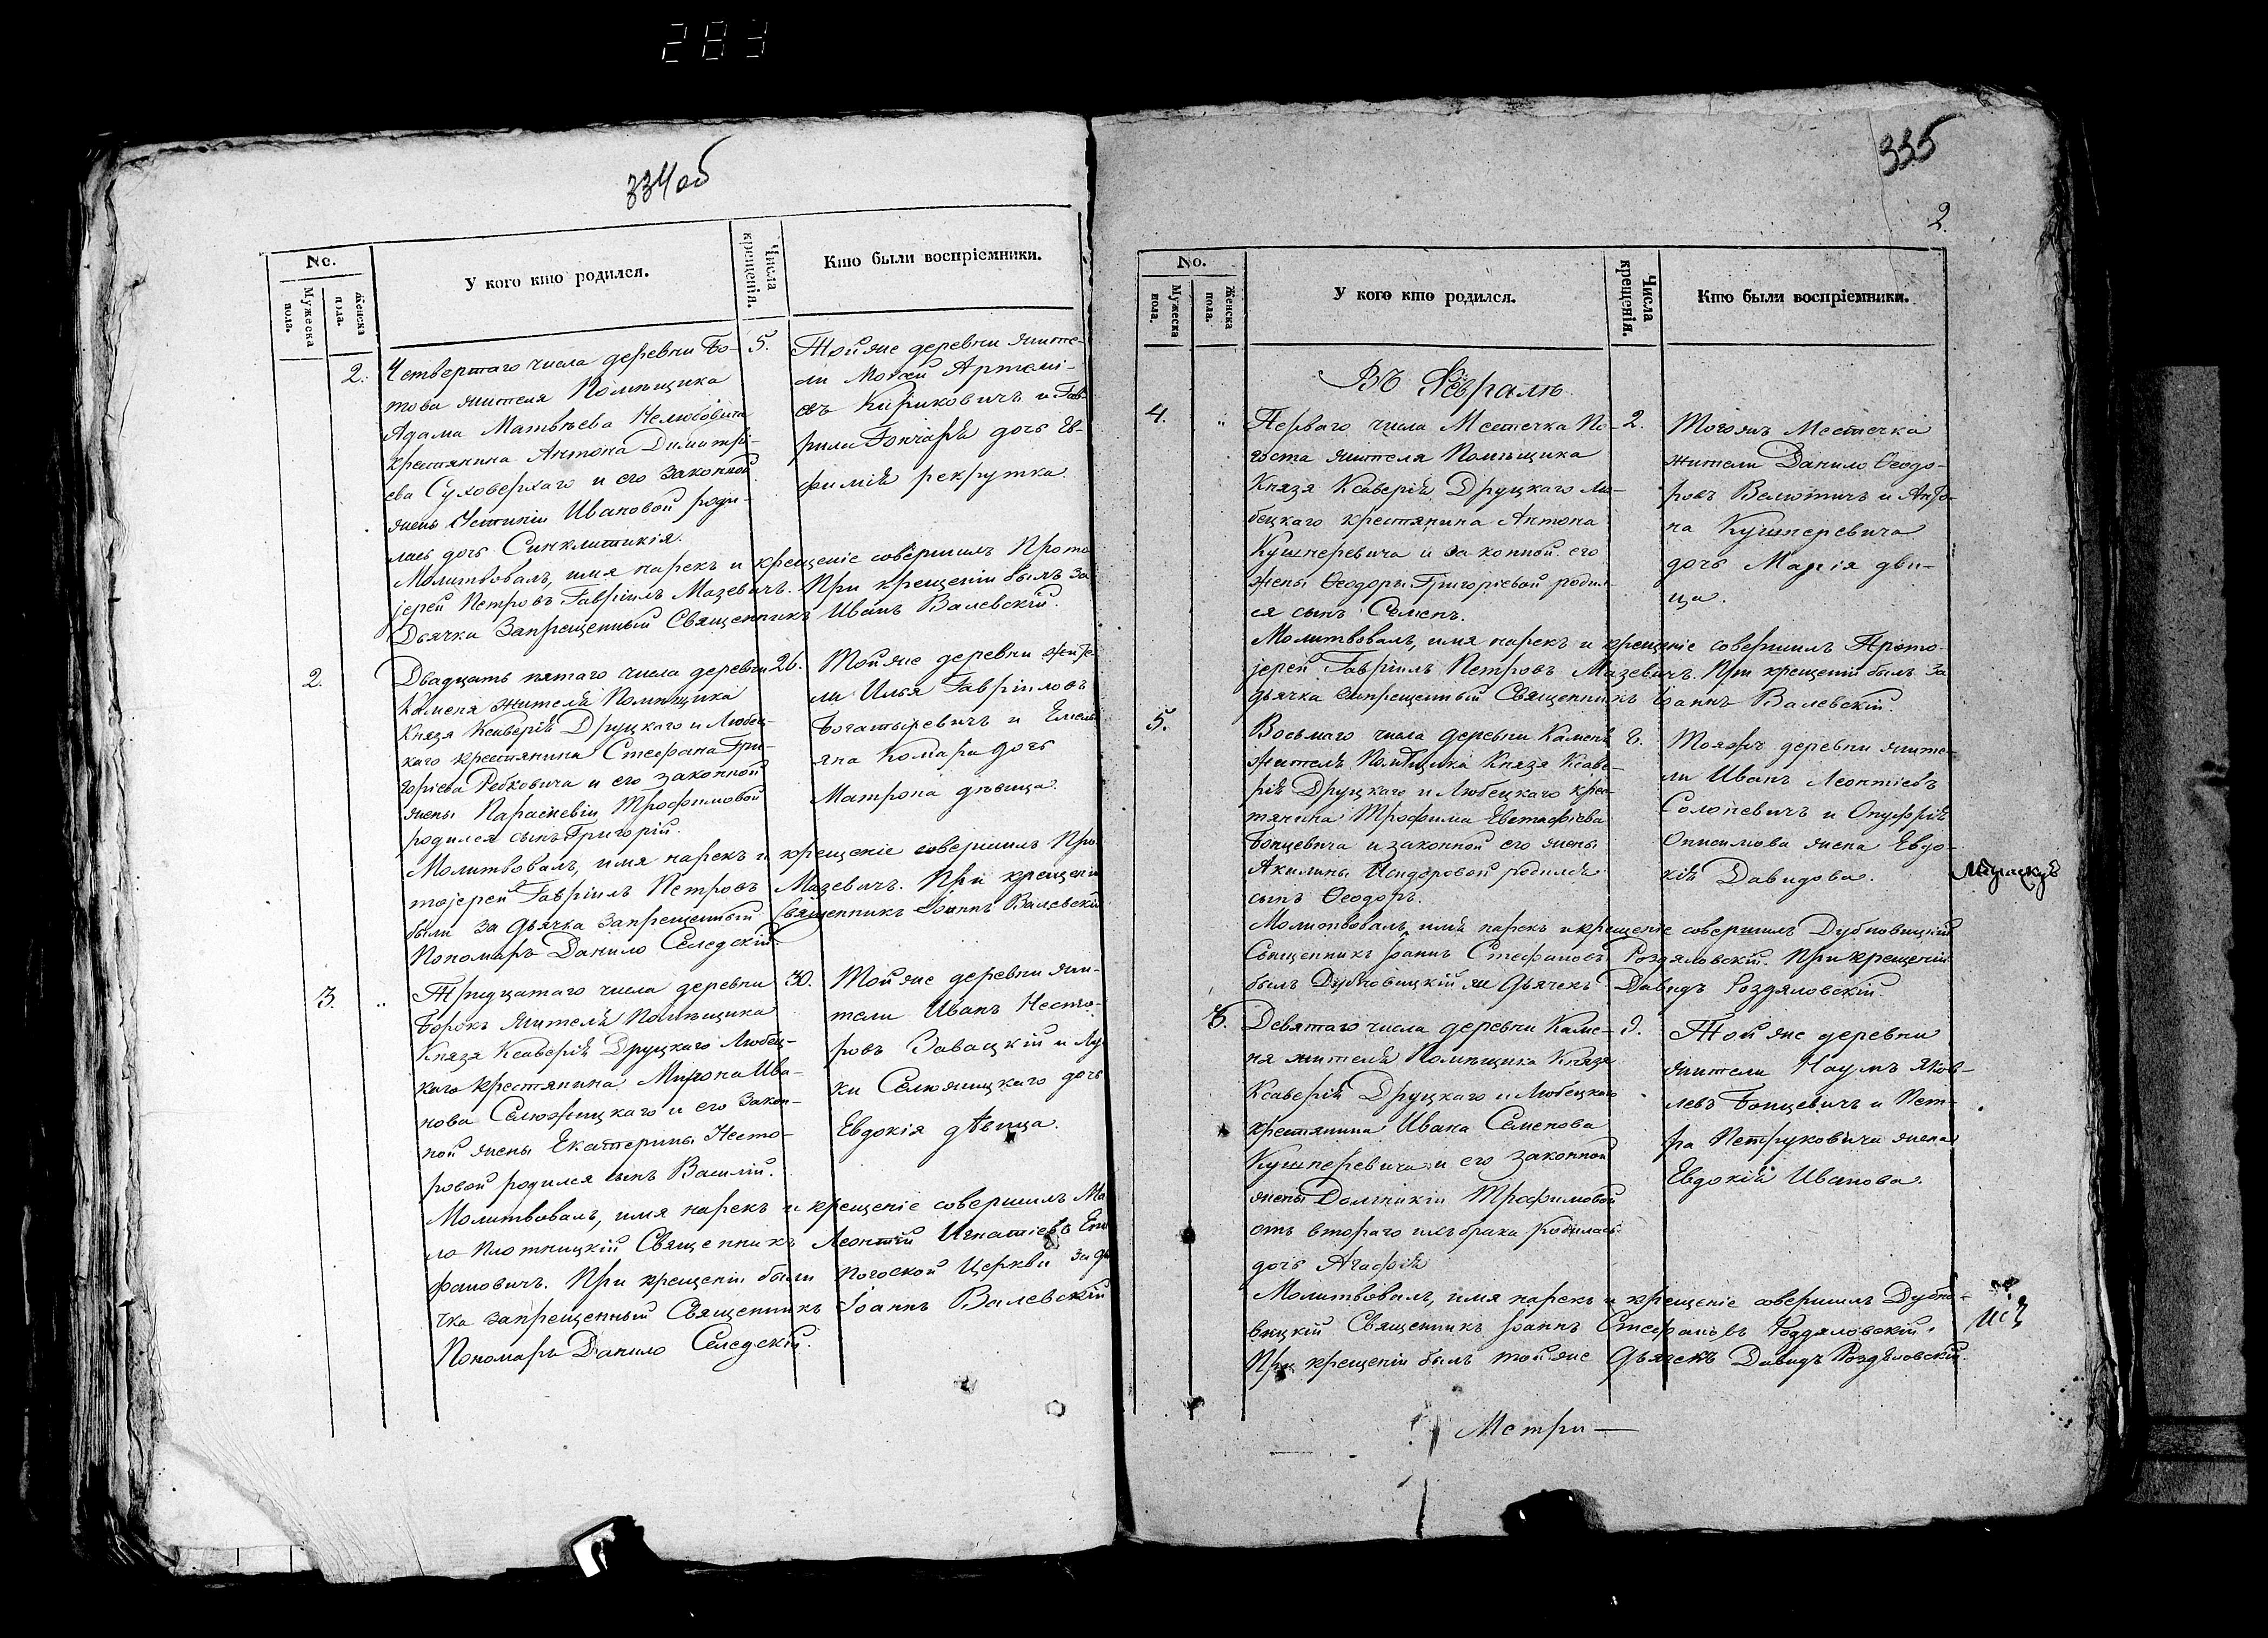 283
334 об
No.
Мужеска пола.
Женска пола.
У кого кто родился.
Числа крещенія.
Кто были воспріемники.
2. Четвертаго числа деревни Бо-
това жителя Помѣщика
Адама Матвѣева Нелюбовича
крестянина Антона Димитрі-
ева Суховерхаго и его законной
жены Іустиніи Ивановой роди-
лась дочь Синклитикія.
5. Той же деревни жите-
ли Артемі-
евъ Кириковичъ и Гав-
рили Гончара дочь Ев-
фимія рекрутка.
Молитвовалъ, имя нарекъ и крещеніе совершилъ Прото
іерей Петровъ Гавріилъ Мазевичъ. При крещеніи былъ за
Дьячка Запрещенный Священникъ Иванъ Валевскій.
2. Двадцать пятаго числа деревни
Каменя жителя Помѣщика
Князя Ксаверія Друцкаго и Любец-
каго крестянина Стефана Гри-
горіева Ребковича и его законной
жены Параскевіи Трофимовой
родился сынъ Григорій.
26. Той же деревни жите
ли Илья Гавріиловъ
Богатыревичъ и Емель
яна Комара дочь
Матрона дѣвица.
Молитвовалъ, имя нарекъ и крещеніе совершилъ Про
тоіерей Гавріилъ Петровъ Мазевичъ. При крещеніи
были за дьячка запрещенный Священникъ Іоаннъ Валевскій
Пономарь Данило Селедскій.
3. „ Тридцатаго числа деревни
Борокъ жителя Помѣщика
Князя Ксаверія Друцкаго Любец-
каго крестянина Мирона Ива-
нова Селюжицкаго и его закон-
ной жены Екатерины Несто-
ровой родился сынъ Василій.
30. Той же деревни жи-
тели Иванъ Несто-
ровъ Завацкій и Лу
ки Селюжицкаго дочь
Евдокія дѣвица.
Молитвовалъ, имя нарекъ и крещеніе совершилъ Ма
ло Плотницкій Священникъ Леонтій Игнатіевъ Епи
фановичъ. При крещеніи были Погоской Церкви за дь
чка запрещенный Священникъ Іоаннъ Валевскій
Пономарь Данило Селедскій.
335
2.
No.
Мужеска пола.
Женска пола.
У кого кто родился.
Числа крещенія.
Кто были воспріемники.
Въ Февралѣ.
4. „ Перваго числа Местечка По-
госта жителя Помѣщика
Князя Ксаверія Друцкаго Лю-
бецкаго крестянина Антона
Кушнеревича и законной его
жены Ѳеодоры Григоріевой родил
ся сынъ Семенъ.
2. Тогожъ Местечка
жители Данило Ѳеодо-
ровъ Велютичъ и Анто-
на Кушнеревича
дочь Марія дѣви-
ца.
Молитвовалъ, имя нарекъ и крещеніе совершилъ Прото-
іерей Гавріилъ Петровъ Мазевичъ. При крещеніи былъ за
дьячка запрещенный Священникъ Іоаннъ Валевскій.
5. Восьмаго числа деревни Каменя
жителя Помѣщика Князя Ксаве-
рія Друцкаго и Любецкаго крес-
тянина Трофима Евстафіева
Бонцевича и законной его жены
Акилины Исидоровой родился
сынъ Ѳеодоръ.
8. Тояжъ деревни жите-
ли Иванъ Леонтіевъ
Солоневичъ и Онуфрія
Онисимова жена Евдо-
кія Давидова.
Молитвовалъ, имя нарекъ и крещеніе совершилъ Дубновицкій
Священникъ Іоаннъ Стефановъ Роздяловскій. При крещеніи
былъ Дубновицкій же Дьячекъ Давидъ Роздяловскій.
3. Девятаго числа деревни Каме-
ня жителя Помѣщика Князя
Ксаверія Друцкаго и Любецкаго
крестянина Ивана Семенова
Кушнеревича и его законной
жены Домникіи Трофимовой
отъ втораго ихъ брака родилась
дочь Агафія
9. Той же деревни
жители Наумъ Яков-
левъ Бонцевичъ и Пет-
ра Петруковича жена
Евдокія Иванова.
Молитвовалъ, имя нарекъ и крещеніе совершилъ Дубно-
вицкій Священникъ Іоаннъ Стефановъ Роздяловскій.
При крещеніи былъ той же Дьячекъ Давидъ Роздѣловскій.
Метри—